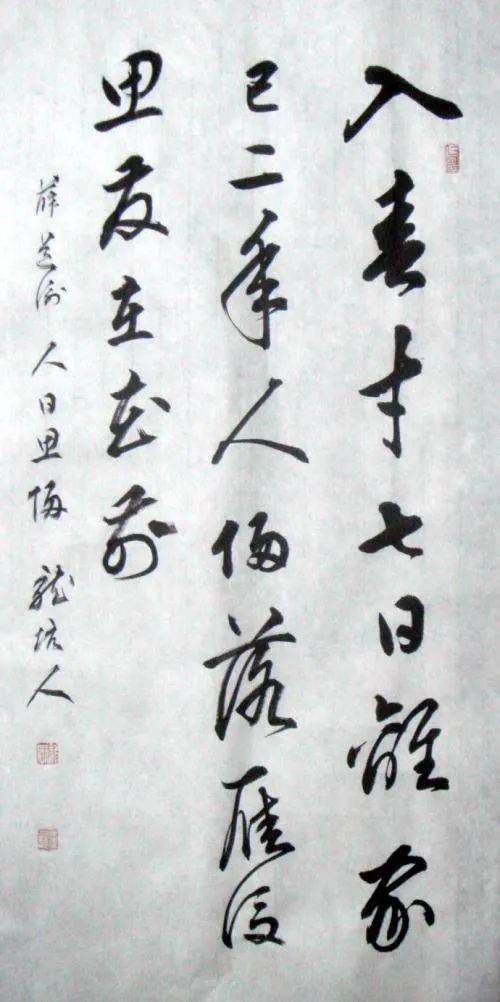 入春才七日離家
已二年人歸落雁後
思發在花前
薛道衡 人日思歸 龍坑人